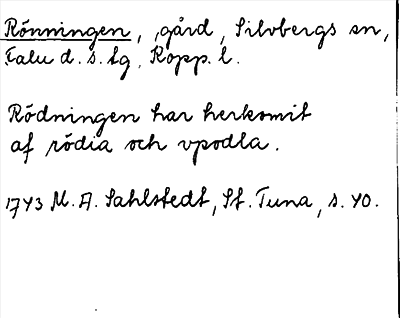 Rönningen, gård, Silvbergs sn,
Falu d. s. lg, Kopp. l.
Rödningen har herkomit
af rödia och vpodla.
1743 M. A. Sahlstedt, St. Tuna, s. 40.